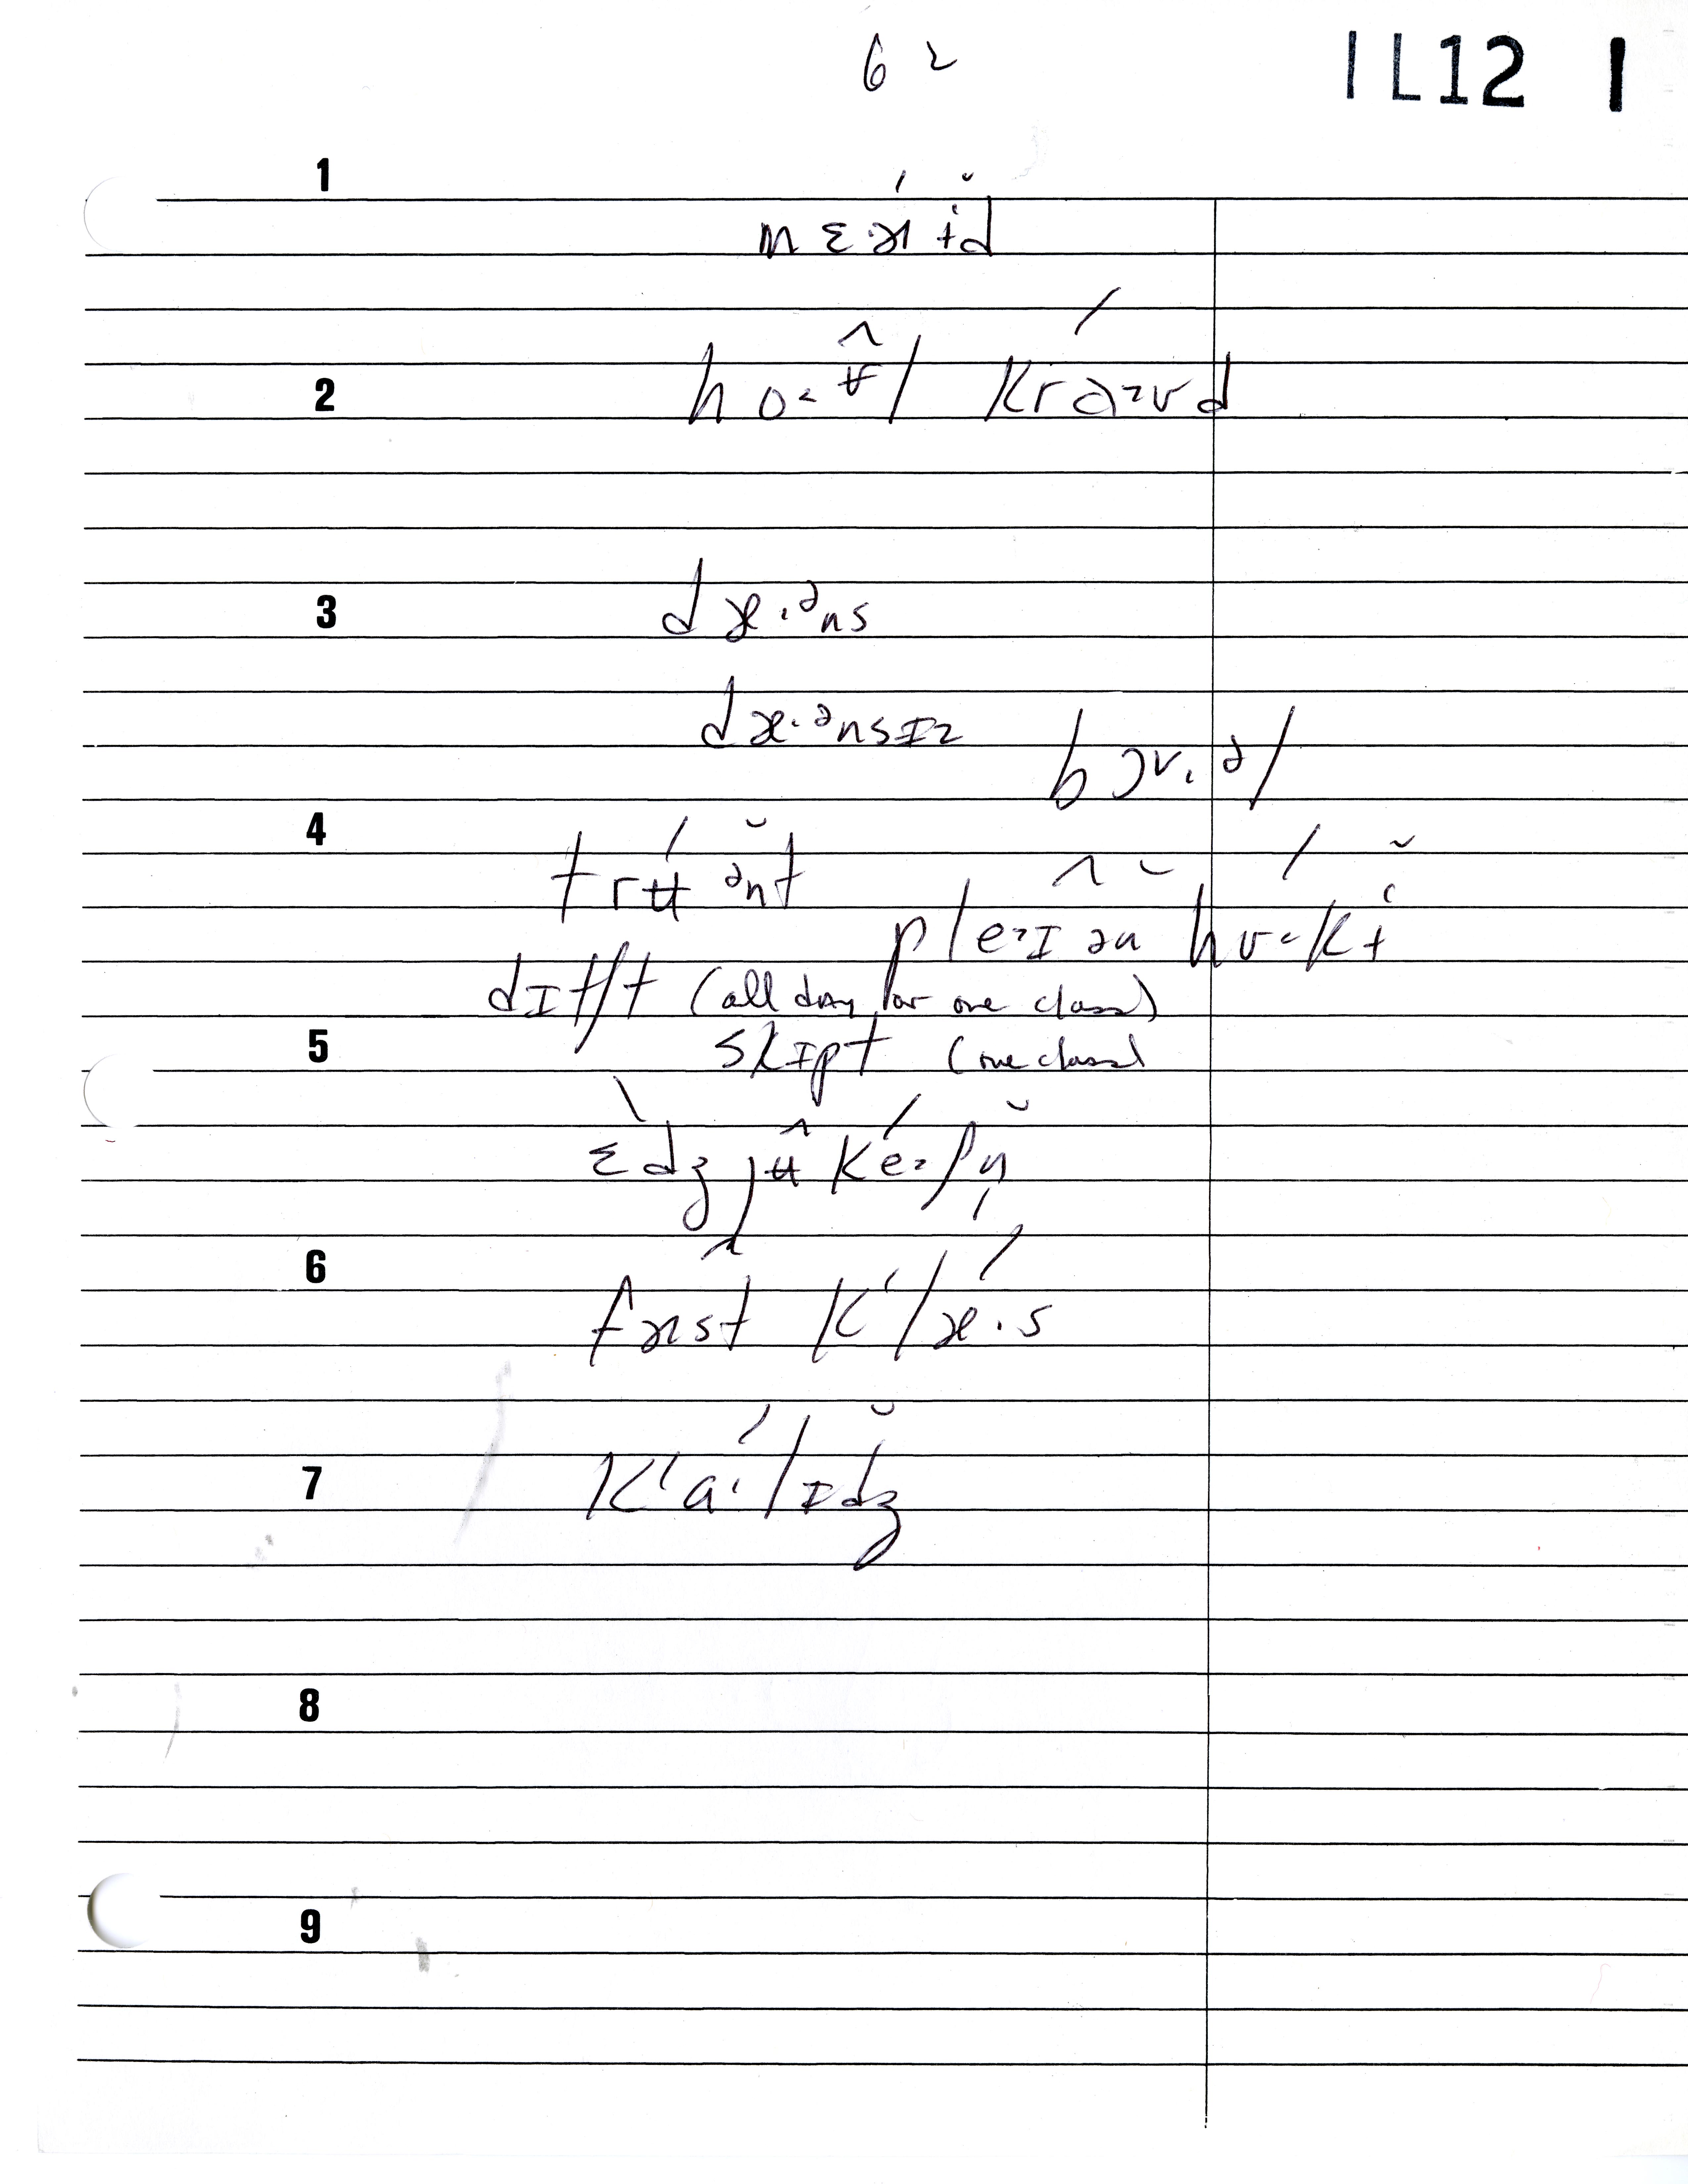 62
IL12 1
1
mɛ·ɚɨd
2
ho˂ʉl kra˃ʊd
3
dæ·ᵊns
dæ·ᵊnsɪz
bɔʊ.əl
4
trʉənt
ple˃ɪən hʊ˂kɨ
dɪtʃt (all day, or one class)
5
skɪpt (one class)
ɛdʒjʉke˃ʃn̩
6
fɝst kʻlæ·s
7
kʻɑ·lɪdʒ
8
9